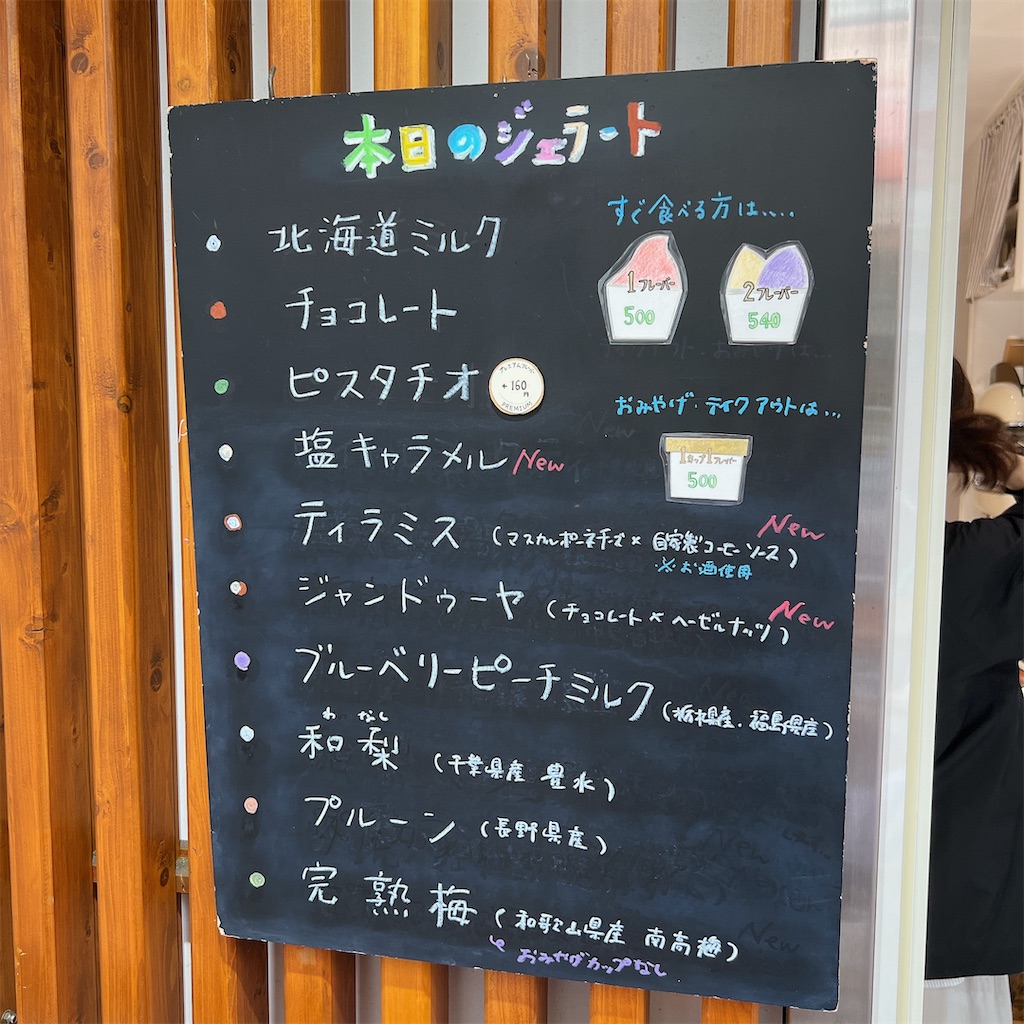 本日のジェラート
北海道ミルク
チョコレート
ピスタチオ
プレミアムフレーバー
+160
円
PREMIUM
塩キャラメル New
ティラミス (マスカルポーネチーズ × 自家製コーヒーソース) New
※お酒使用
ジャンドゥーヤ (チョコレート × ヘーゼルナッツ) New
ブルーベリーピーチミルク (栃木県産.福島県産)
わ なし
和梨 (千葉県産 豊水)
プルーン (長野県産)
完熟梅 (和歌山県産 南高梅)
おみやげカップなし
すぐ食べる方は.....
1フレーバー
500
2フレーバー
540
おみやげ・テイクアウトは...
1カップ1フレーバー
500